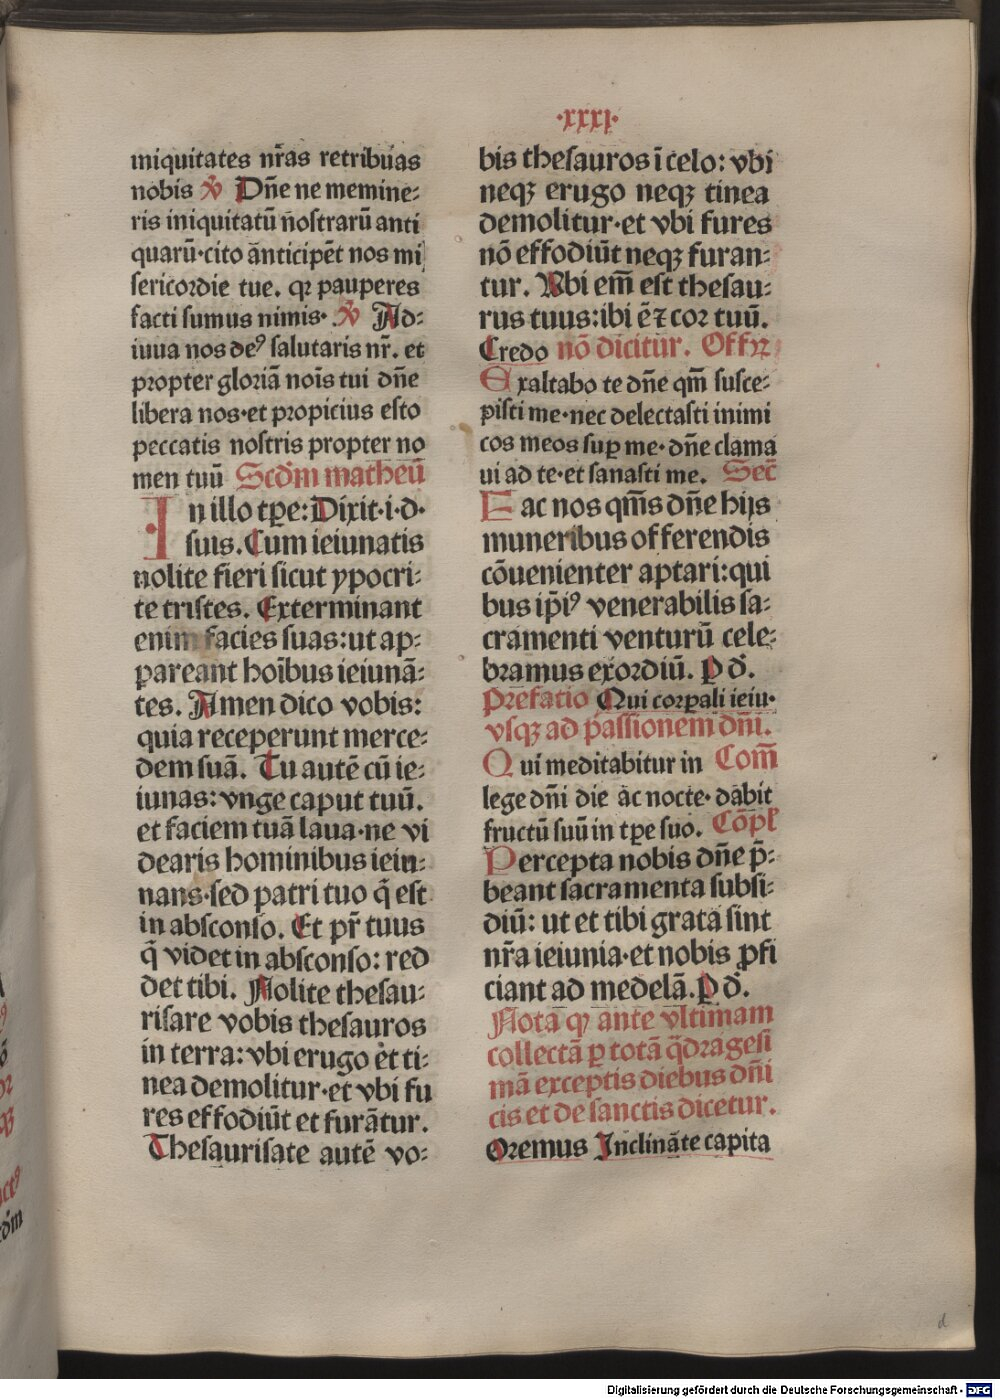 ·xxxı·
iniquitates nr̃as retribuas
nobis ℣ Dñe ne memine⸗
ris iniquitatū nostrarū anti
quarū·cito anticipēt nos mi
sericordie tue. qꝛ pauperes
facti sumus nimis· ℣ Ad⸗
iuua nos deꝰ salutaris nr̃. et
propter gloriā nois̄ tui dñe
libera nos·et propicius esto
peccatis nostris propter no
men tuū Scd̄m matheū
In illo tꝑe: Dixit·i·d·
suis. Cum ieiunatis
nolite fieri sicut ypocri⸗
te tristes. Exterminant
enim facies suas: ut ap⸗
pareant hoı̄bus ieiunā⸗
tes. Amen dico vobis:
quia receperunt merce⸗
dem suā. Tu autē cū ie⸗
iunas: vnge caput tuū.
et faciem tuā laua·ne vi
dearis hominibus ieiu⸗
nans·sed patri tuo q̄ est
in absconso. Et pr̃ tuus
q̄ videt in absconso: red
det tibi. Nolite thesau⸗
risare vobis thesauros
in terra: vbi erugo et ti⸗
nea demolitur·et vbi fu
res effodiūt et furātur.
Thesaurisate autē vo⸗
bis thesauros ī celo: vbi
neqꝫ erugo neqꝫ tinea
demolitur·et vbi fures
nō effodiūt neqꝫ furan⸗
tur. Vbi em̄ est thesau⸗
rus tuus: ibi ē ⁊ cor tuū.
Credo nō dicitur. Offꝛ
Exaltabo te dñe qm̄ susce⸗
pisti me·nec delectasti inimi
cos meos suꝑ me·dñe clama
ui ad te·et sanasti me. Secr̄
Fac nos qm̄s dñe hijs
muneribus offerendis
cōuenienter aptari: qui
bus ip̄iꝰ venerabilis sa⸗
cramenti venturū cele⸗
bramus exordiū. P d̄.
Prefatio Qui corꝑali ieiu·
vsqꝫ ad passionem dñi.
Qui meditabitur in Com̄
lege dñi die ac nocte· dabit
fructū suū in tꝑe suo. Cōpl̄
Percepta nobis dñe p̄⸗
beant sacramenta subsi⸗
diū: ut et tibi grata sint
nr̃a ieiunia·et nobis ꝓfi
ciant ad medelā. P d̄.
Nota qꝙ ante vltimam
collectā ꝑ totā q̄dragesi
mā exceptis diebus dñi
cis et de sanctis dicetur.
Oremus Inclinate capita
d
Digitalisierung gefördert durch die Deutsche Forschungsgemeinschaft - DFG